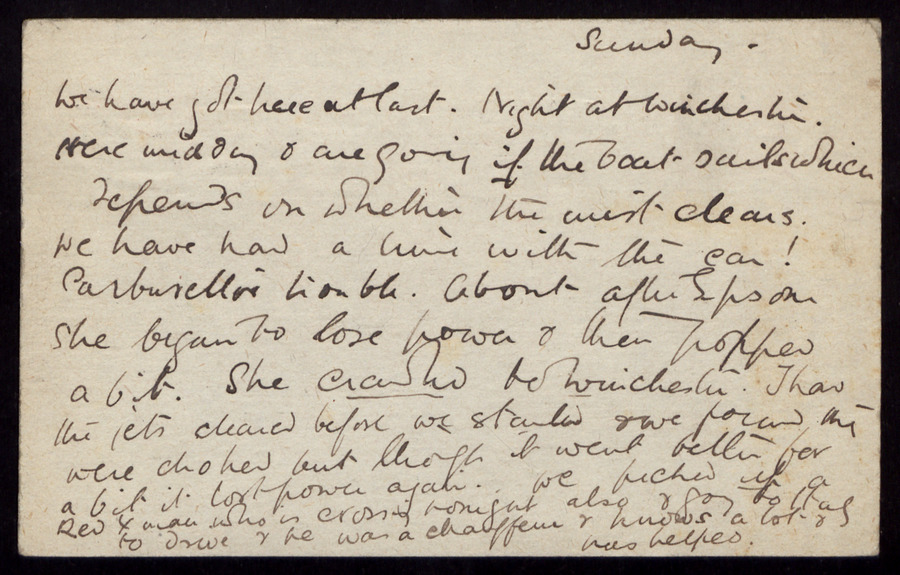 Sunday.
We have got here at last. Night at Winchester.
Here midday & are going if the boat sails which
depends on whether the mist clears.
We have had a time with the car!
Carburettor trouble. About after Epsom
she began to lose power & then popped
a bit. She crawled to Winchester. I had
the jets cleared before we started & we found they
were choked but though it went better for
a bit it lost power again. We picked up a
Red X man who is crossing tonight also & going to Italy
to drive & he was a chauffeur & knows a lot &
has helped.